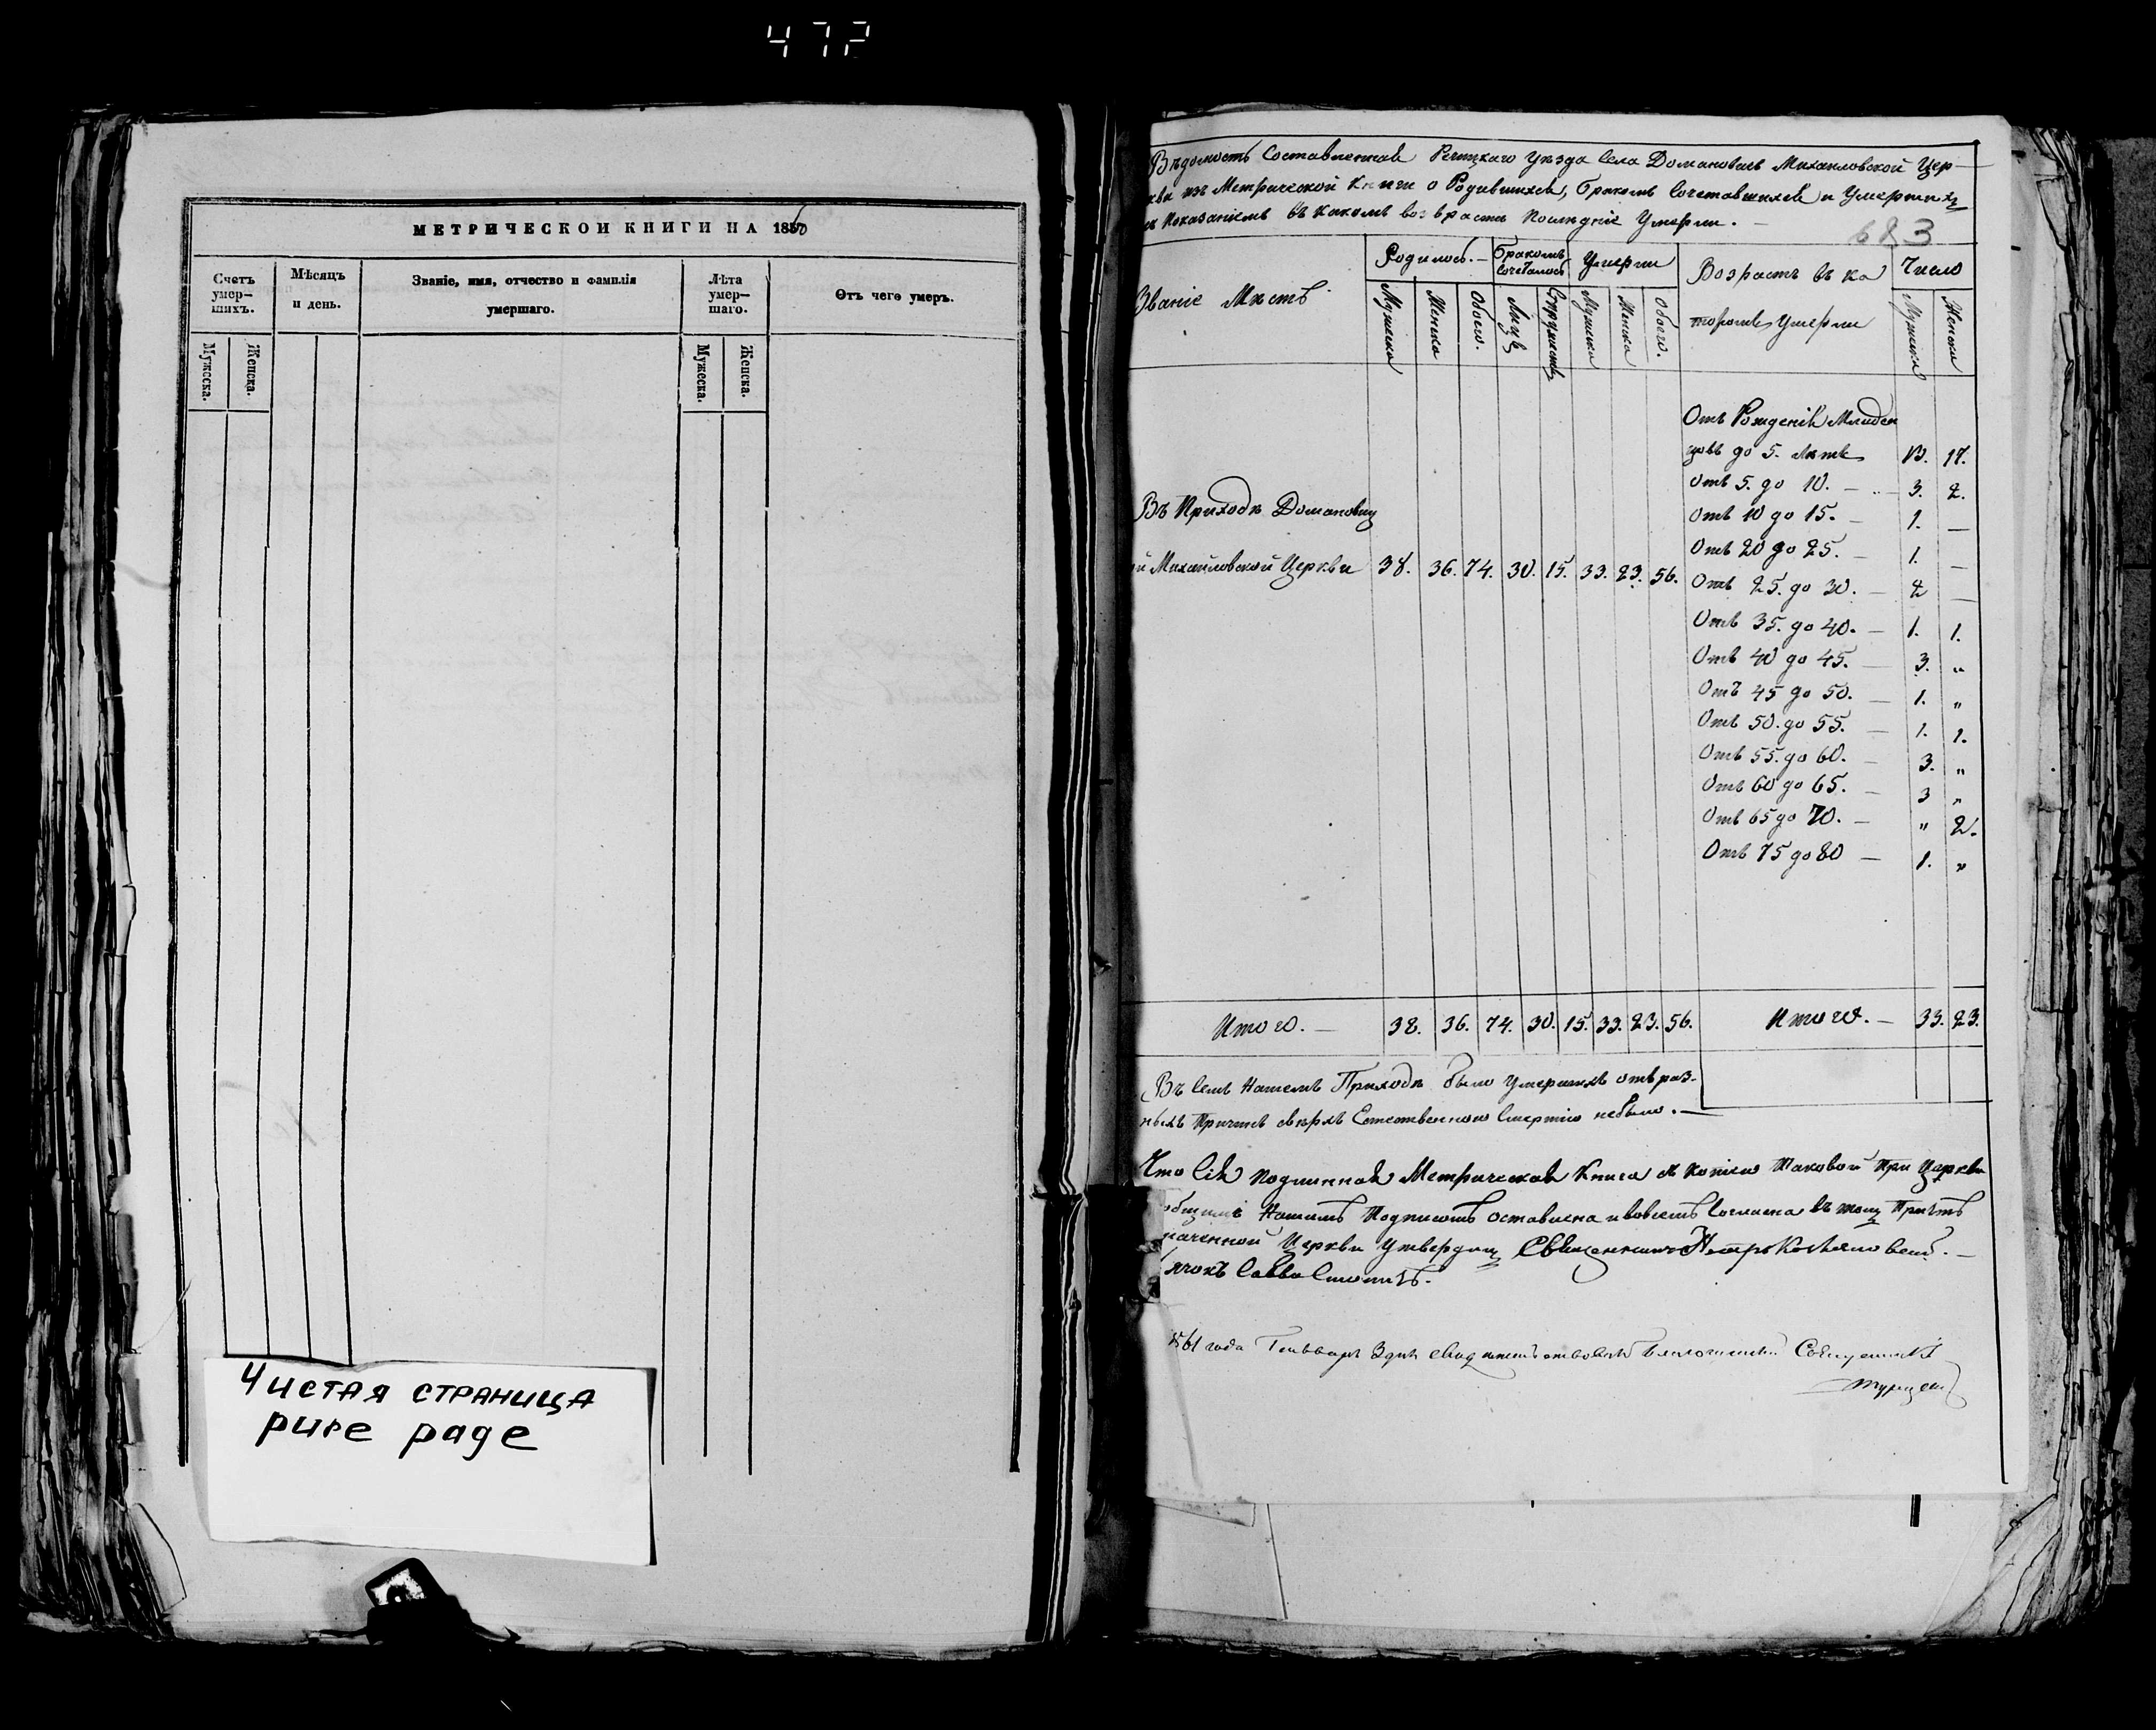 472
МЕТРИЧЕСКОЙ КНИГИ НА 1860
Счетъ умер-шихъ.
Мѣсяцъ и день.
Званіе, имя, отчество и фамилія умершаго.
Лѣта умер-шаго.
Отъ чего умеръ.
Мужеска.
Женска.
Мужеска.
Женска.
ЧИСТАЯ СТРАНИЦА
pure page
Вѣдомость Составленная Речицкаго Уѣзда Села Домановичь Михайловской Цер-
кви изъ Метрической Книги о Родившихся, Бракомъ Сочетавшихся и Умершихъ
съ Показаніемъ въ какомъ возврастѣ послѣдніе Умерли. —
683
Званіе Мѣстъ
Родилось. —
Бракомъ Сочеталось
Умерли
Возрастъ въ ка
торомъ Умерли
Число
Мужеска
Женска
Обоего.
Лицъ
Супружествъ
Мужеска
Женска
Обоего.
Мужеска
Женска
Отъ Рожденія Младен
цовъ до 5. Лѣтъ 13. 17.
Отъ 5. до 10. — 3. 2.
Отъ 10 до 15. — 1. —
Отъ 20 до 25. — 1. —
Отъ 25. до 30. — 2 —
Отъ 35. до 40. — 1. 1.
Отъ 40 до 45. — 3. "
Отъ 45 до 50. — 1. "
Отъ 50. до 55. — 1. 1.
Отъ 55. до 60. — 3. "
Отъ 60 до 65. — 3 "
Отъ 65 до 70. — " 2.
Отъ 75 до 80 — 1. "
Въ Приходѣ Домановиц
ой Михайловской Церкви 38. 36. 74. 30. 15. 33. 23. 56.
Итого. — 38. 36. 74. 30. 15. 33. 23. 56. Итого. — 33. 23.
Въ Семъ Нашемъ Приходѣ было Умершихъ отъ раз-
ныхъ Причинъ сверхъ Естественною Смертію небыло. —
Что Сія подлинная Метрическая Книга съ копіею таковой При Церкви
общимъ Нашимъ Подписомъ оставлена и вовсемъ Согласна въ томъ Причтъ
наченной Церкви Утвердилъ Священникъ Петръ
ячокъ Савва
1861 года Генваря 3 дня свидѣтельствовалъ Благочинный Священникъ